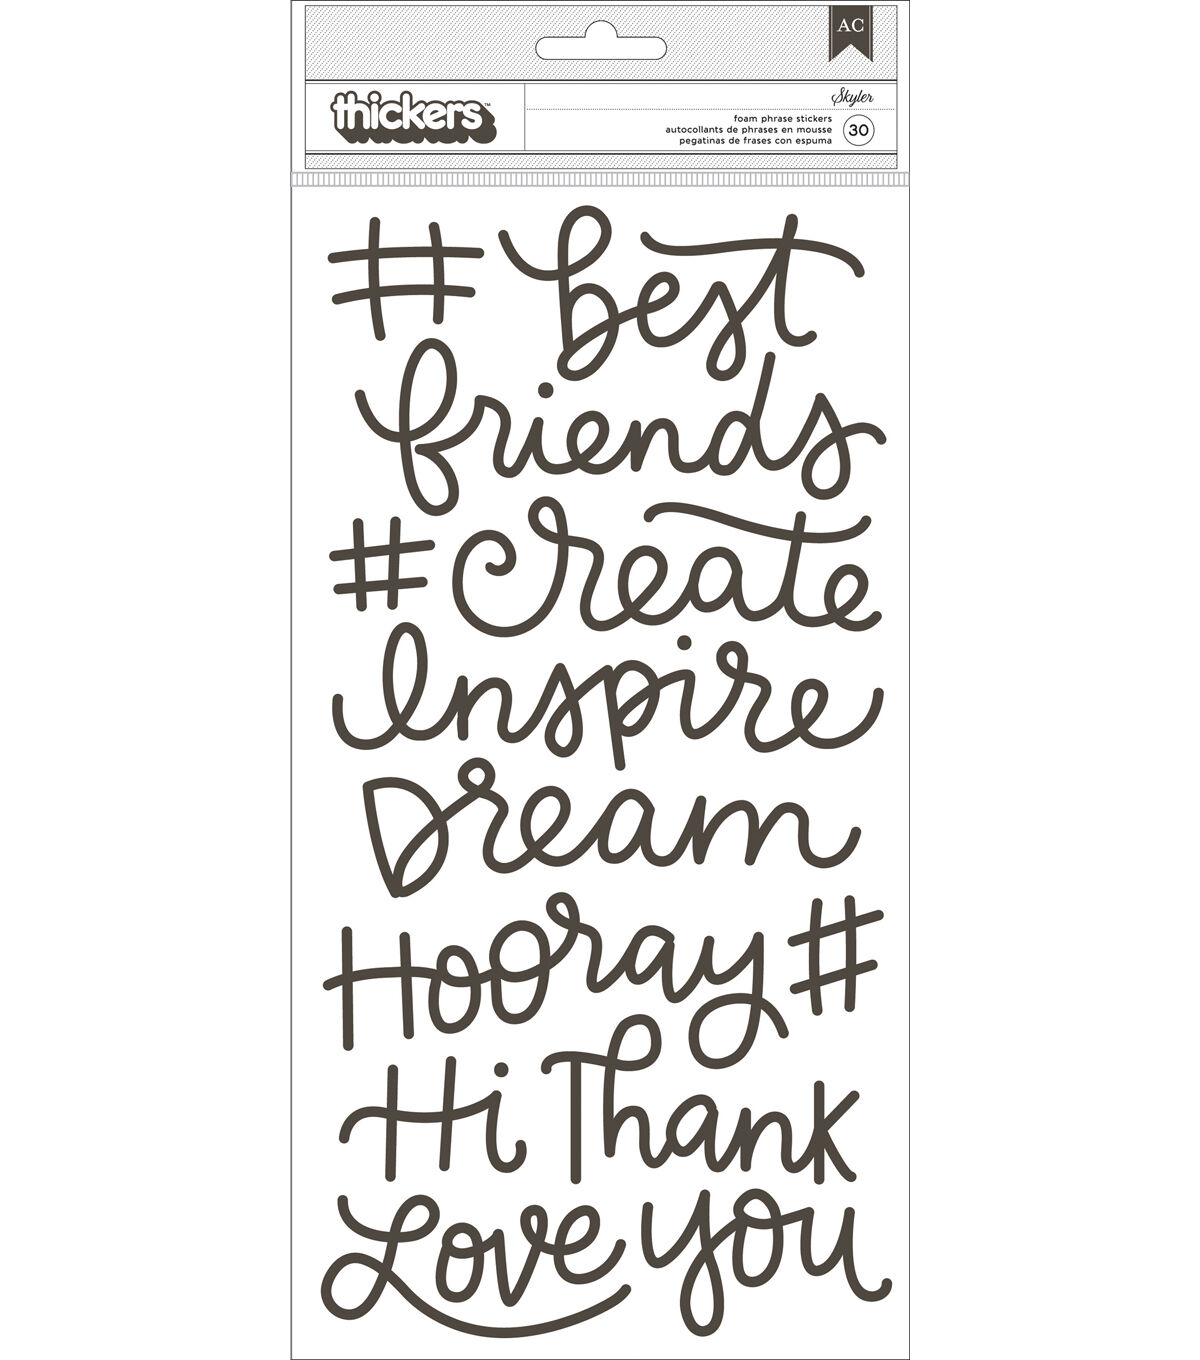 AC
thickers™
Skyler
foam phrase stickers
autocollants de phrases en mousse
pegatinas de frases con espuma
30
# best
friends
# Create
Inspire
Dream
Hooray #
Hi Thank
Love you